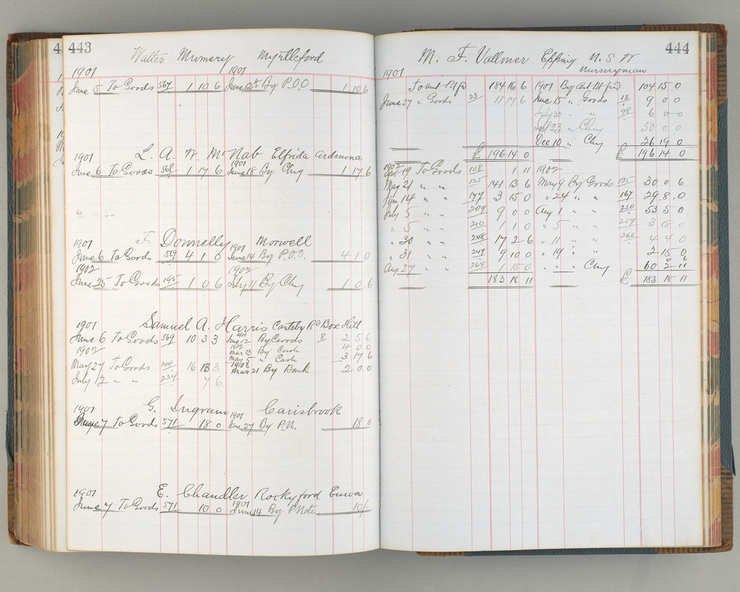 443
Walter Mumery Myrtleford
1901 1901
June 5 To Goods 567 1 10 6 June 12th By P.O.O 1 10 6
1901 L. A. W McNab Elfrida Ardmona
June 6 To Goods 568 1 17 6 1901 June 18 By Chq 1 17 6
1901 F. Donnelly Morwell
June 6 To Goods 569 4 1 0 1901 June 14 By P.O.O. 4 1 0
1902 1902
June 25 To Goods 195 1 0 6 July 11 By Chq 1 0 6
1901 Samuel A. Harris Box Hill
June 6 To Goods 569 10 3 3 1901 June 12 By Goods 8 2 5 6
1902 1902 Mar 13 By Cash 4 0 0
May 27 To Goods 16 13 Cash 3 17 6
July 12 " " 224 7 6 Mar 21 By Bank 2 0 0
1901 G. Ingram Carisbrook
June 7 To Goods 571 18 0 1901 June 27 By P.N. 18 0
1901 E. Chandler Rockyford Euroa
June 7 To Goods 571 10 0 1901 June 14 By P Note 10/-
444
M. F. Vollmer Epping N. S. W
Nurseryman
1901
To act Bt fd 184 16 6 1901 By Act Bt fwd 104 15 0
June 27 " Goods 23 11 17 6 June 15 " Goods 13 9 0 0
" 28 6 0 0
" Chq 50 0 0
Dec 10 " Chq 26 19 0
£ 196 14 0 £ 196 14 0
1902 To Goods 108 1 11 1902
May 21 " " 135 141 13 6 May 9 By Goods 135 30 0 6
" 14 " " 177 3 15 0 " 24 " " 167 29 8 0
July 5 " " 209 9 0 0 Aug 1 " " 250 53 5 0
" 5 " " 210 1 1 0 " 5 " " 259 3 15 0
" 30 " " 248 17 2 6 " 11 " " 266 4 4 0
" 31 " " 249 9 10 0 " 19 " " 2 15 0
Aug 27 " " 268 15 0 " Chq 60 2 11
183 18 11 £ 183 18 11